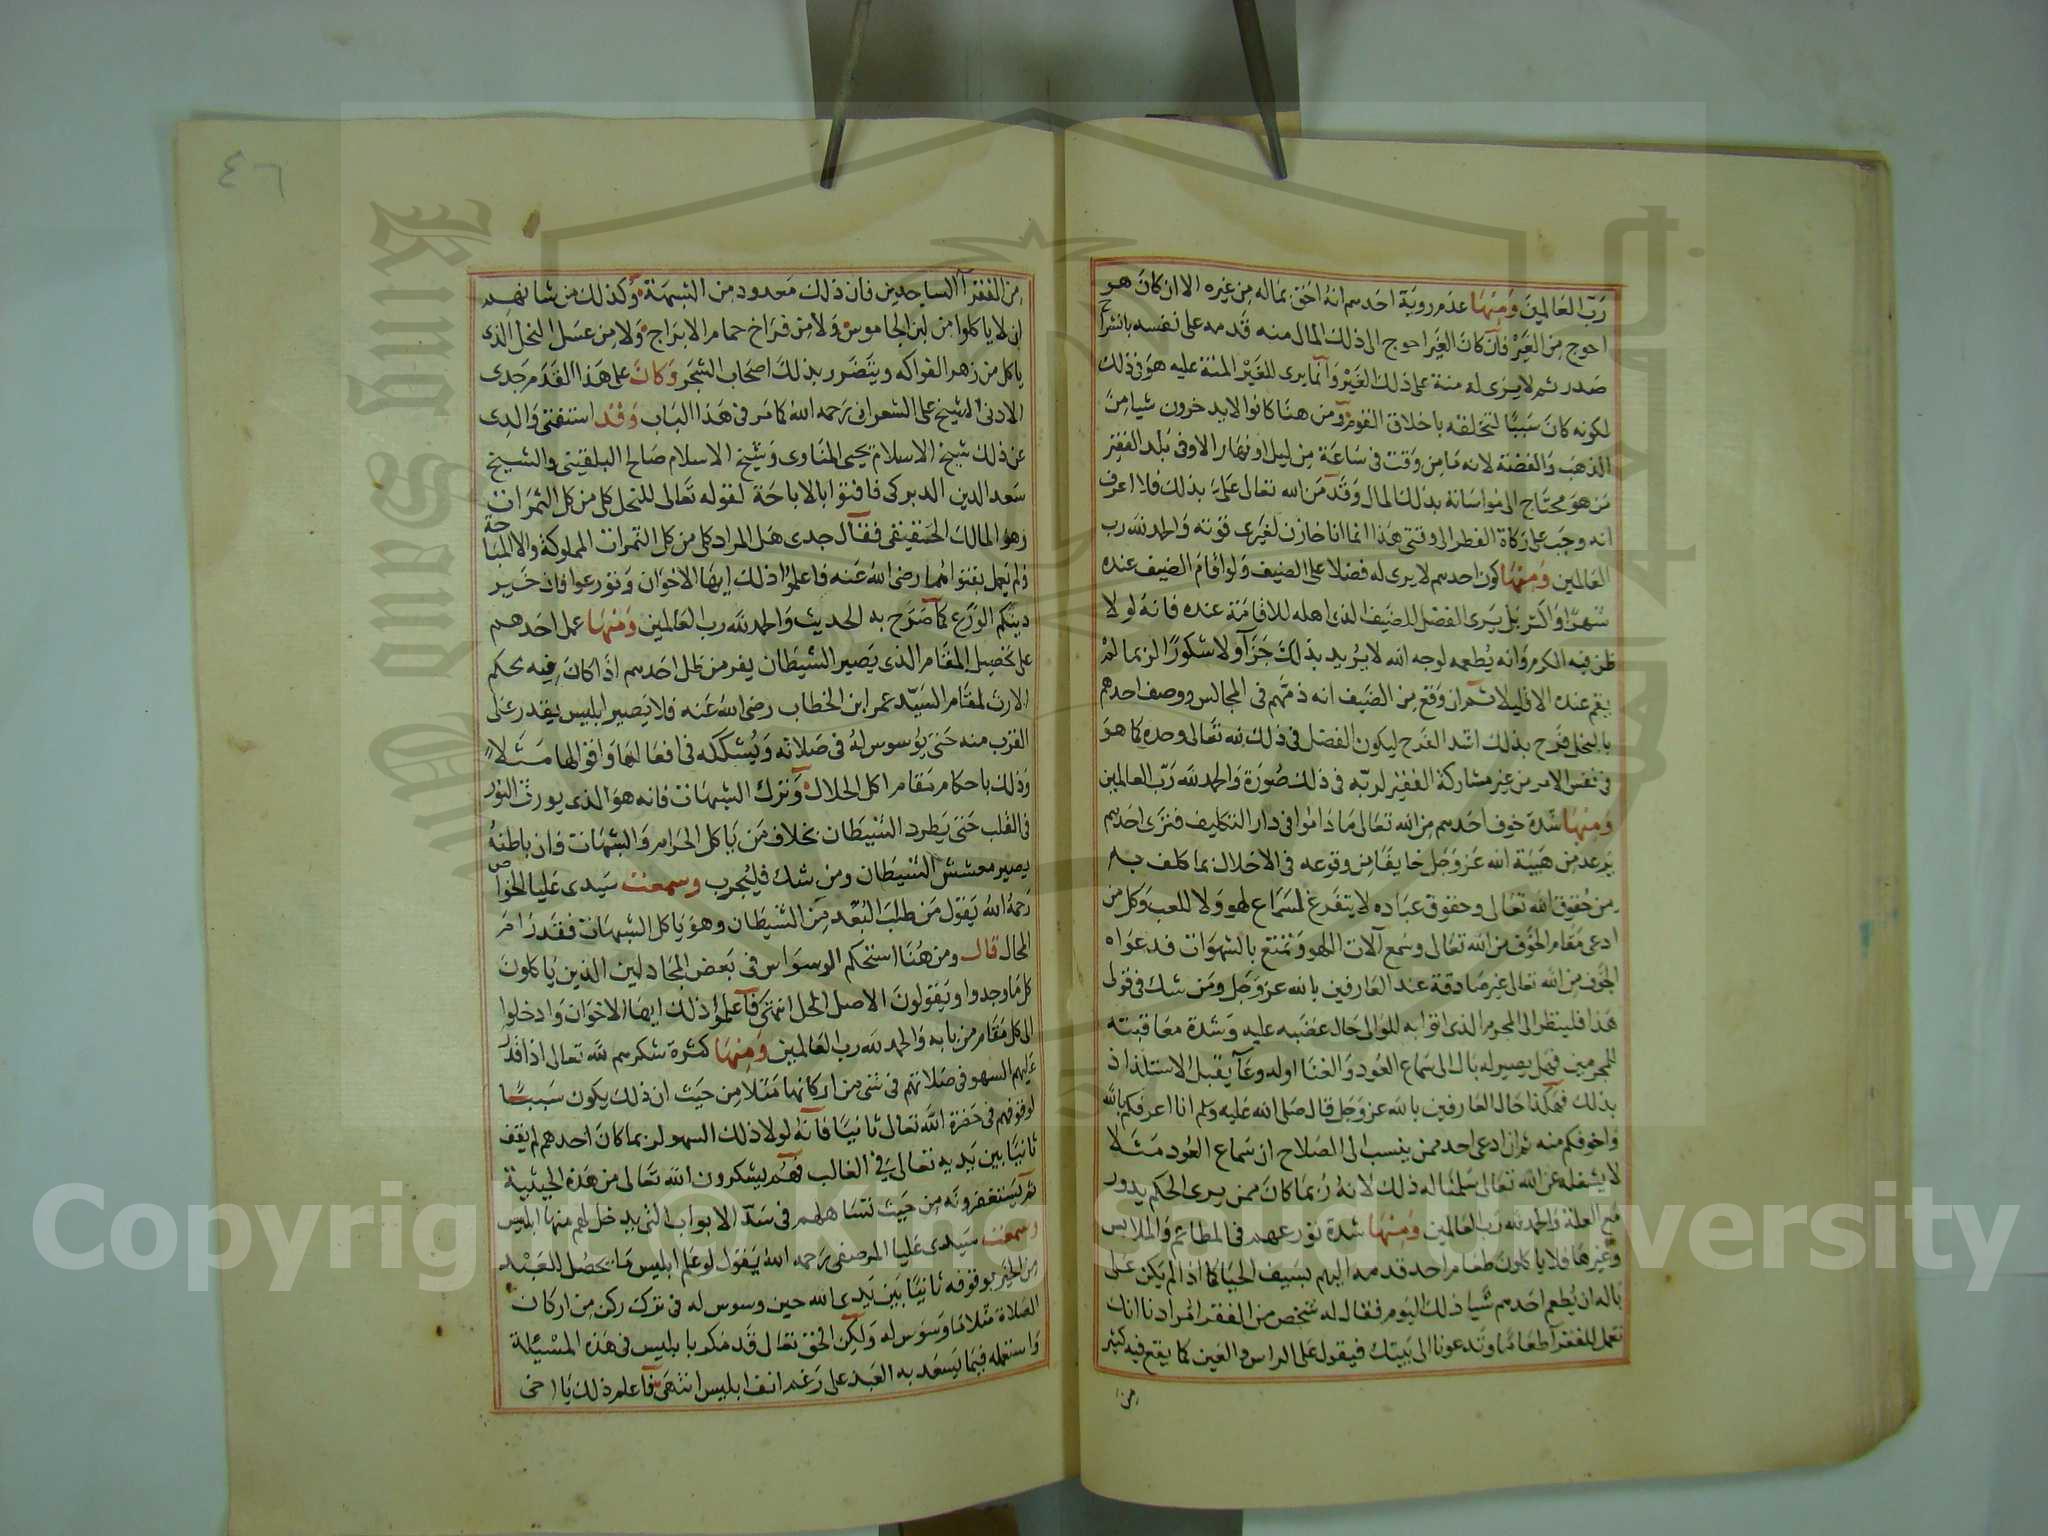 رب العالمين ومنها عدم روية احدهم انه احق بماله من غيره الا ان كان هو
احوج من الغير فان كان الغير احوج الى ذلك المال منه قدمه على نفسه بانشراح
صدر ثم لا يرى له منة على ذلك الغير وانما يرى للغير المنة عليه هو في ذلك
لكونه كان سببا لتخلقه باخلاق القوم ومن هنا كانوا لا يدخرون شيا من
الذهب والفضة لانه ما من وقت في ساعة من ليل او نهار الا وفي بلد الفقير
من هو محتاج الى مواساته بذلك المال وقد من الله تعالى علي بذلك فلا اعرف
انه وجب علي زكاة الفطر الى وقتي هذا انما انا خازن لغيري قوته والحمد لله رب
العالمين ومنها كون احدهم لا يرى له فضلا على الضيف ولو اقام الضيف عنده
شهرا واكثر بل يرى الفضل للضيف الذي اهله للاقامة عنده فانه لولا
ظن فيه الكرم وانه يطعمه لوجه الله لا يريد بذلك جزآ ولا شكورا لربما لم
يقم عنده الا قليلا ثم ان وقع من الضيف انه ذمهم في المجالس ووصف احدهم
بالبخل فرح بذلك اشد الفرح ليكون الفضل في ذلك لله تعالى وحده كما هو
في نفس الامر من غير مشاركة الفقير لربه في ذلك صورة والحمد لله رب العالمين
ومنها شدة خوف احدهم من الله تعالى ما داموا في دار التكليف فترى احدهم
يرعد من هيبة الله عز وجل خايفا من وقوعه في الاخلال بما كلف به
من حقوق الله تعالى وحقوق عباده لا يتفرغ لسماع لهو ولا للعب وكل من
ادعى مقام الخوف من الله تعالى وسمع آلات اللهو وتمتع بالشهوات فدعواه
الخوف من الله تعالى غير صادقة عند العارفين بالله عز وجل ومن شك في قولى
هذا فلينظر الى المجرم الذي اتوا به للوالى حال غضبه عليه وشدة معاقبته
للمجرمين فهل يصير له بال الى سماع العود والغنا اوله وعآ يقبل الاستلذاذ
بذلك فهكذا حال العارفين بالله عز وجل قال صلى الله عليه وسلم انا اعرفكم بالله
واخوفكم منه ثم ان ادعى احد ممن ينسب الى الصلاح ان سماع العود مثلا
لا يشغله عن الله تعالى سلمنا له ذلك لانه ربما كان ممن يرى الحكم يدور
مع العلة والحمد لله رب العالمين ومنها شدة تورعهم في المطاعم والملابس
وغيرها فلا ياكلون طعام احد قدمه اليهم بسيف الحيا كما اذا لم يكن على
باله ان يطعم احدهم شيا ذلك اليوم فقال له شخص من الفقرا مرادنا انك
تعمل للفقرآ طعاما وتدعونا الى بيتك فيقول على الراس والعين كما يقع فيه كثير
من
٤٦
من الفقرآ الساجدين فان ذلك معدود من الشبهة وكذلك من شانهم
ان لا ياكلوا من لبن الجاموس ولا من فراخ حمام الابراج ولا من عسل النحل الذي
ياكل من زهر الفواكه ويتضرر بذلك اصحاب الشجر وكان على هذا القدم جدى
الادنى الشيخ على الشعراني رحمه الله كما مر في هذا الباب وقد استفتى والدى
عن ذلك شيخ الاسلام يحيى المناوى وشيخ الاسلام صالح البلقينى والشيخ
سعد الدين الديري فافتوا بالاباحة لقوله تعالى للنحل كلى من كل الثمرات
وهو المالك الحقيقي فقال جدى هل المراد كلى من كل الثمرات المملوكة والا المباحة
ولم يعمل بفتواهما رضى الله عنه فاعلموا ذلك ايها الاخوان وتورعوا فان خير
دينكم الورع كما صرح به الحديث والحمد لله رب العالمين ومنها عمل احدهم
على تحصيل المقام الذي يصير الشيطان يفر من ظل احدهم اذا كان فيه بحكم
الارث لمقام السيد عمر ابن الخطاب رضى الله عنه فلا يصير ابليس يقدر على
القرب منه حتى يوسوس له في صلاته ويشككه في افعالها واقوالها مثلا
وذلك باحكام مقام اكل الحلال وترك الشبهات فانه هو الذي يورث النور
في القلب حتى يطرد الشيطان بخلاف من ياكل الحرام والشبهات فان باطنه
يصير معشش الشيطان ومن شك فليجرب وسمعت سيدى عليا الخواص
رحمه الله يقول من طلب البعد من الشيطان وهو ياكل الشبهات فقد رام
المحال قال ومن هنا استحكم الوسواس في بعض المجادلين الذين ياكلون
كل ما وجدوا ويقولون الاصل الحل انتهى فاعلموا ذلك ايها الاخوان وادخلوا
الى كل مقام من بابه والحمد لله رب العالمين ومنها كثرة شكرهم لله تعالى اذا قدر
عليهم السهو في صلاتهم في شي من اركانها مثلا من حيث ان ذلك يكون سببا
لوقوفهم في حضرة الله تعالى ثانيا فانه لولا ذلك السهو لربما كان احدهم لم يقف
ثانيا بين يديه تعالى في الغالب فهم يشكرون الله تعالى من هذه الحيثية
ثم يستغفرونه من حيث تساهلهم في سد الابواب التي يدخل لهم منها ابليس
وسمعت سيدى عليا المرصفى رحمه الله يقول لو علم ابليس ما يحصل للعبد
من الخير بوقوفه ثانيا بين يدى الله حين وسوس له في ترك ركن من اركان
الصلاة مثلا ما وسوس له ولكن الحق تعالى قد مكر بابليس في هذه المسئلة
واستعمله فيما يسعد به العبد على رغم انف ابليس انتهى فاعلم ذلك يا اخى
King Saud University
Copyright © King Saud University